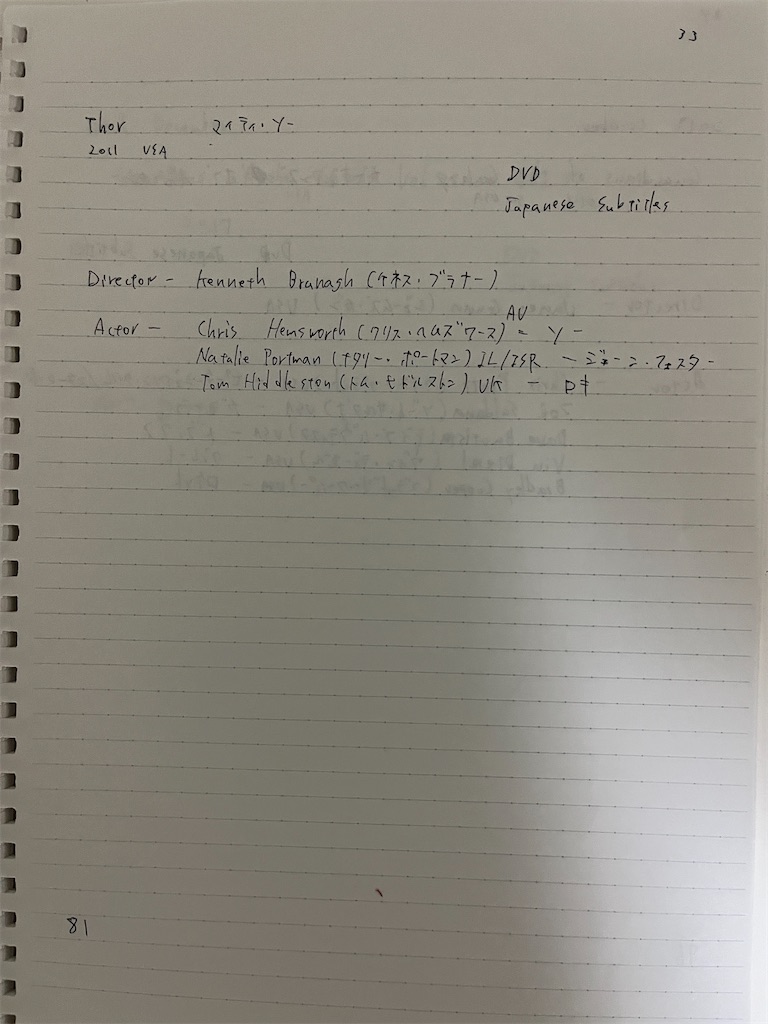 33
Thor マイティ・ソー
2011 USA
DVD
Japanese Subtitles
Director - Kenneth Branagh (ケネス・ブラナー)
Actor - Chris Hemsworth (クリス・ヘムズワース) AU - ソー
Natalie Portman (ナタリー・ポートマン) IL/ISR - ジェーン・フォスター
Tom Hiddleston (トム・ヒドルストン) UK - ロキ
81